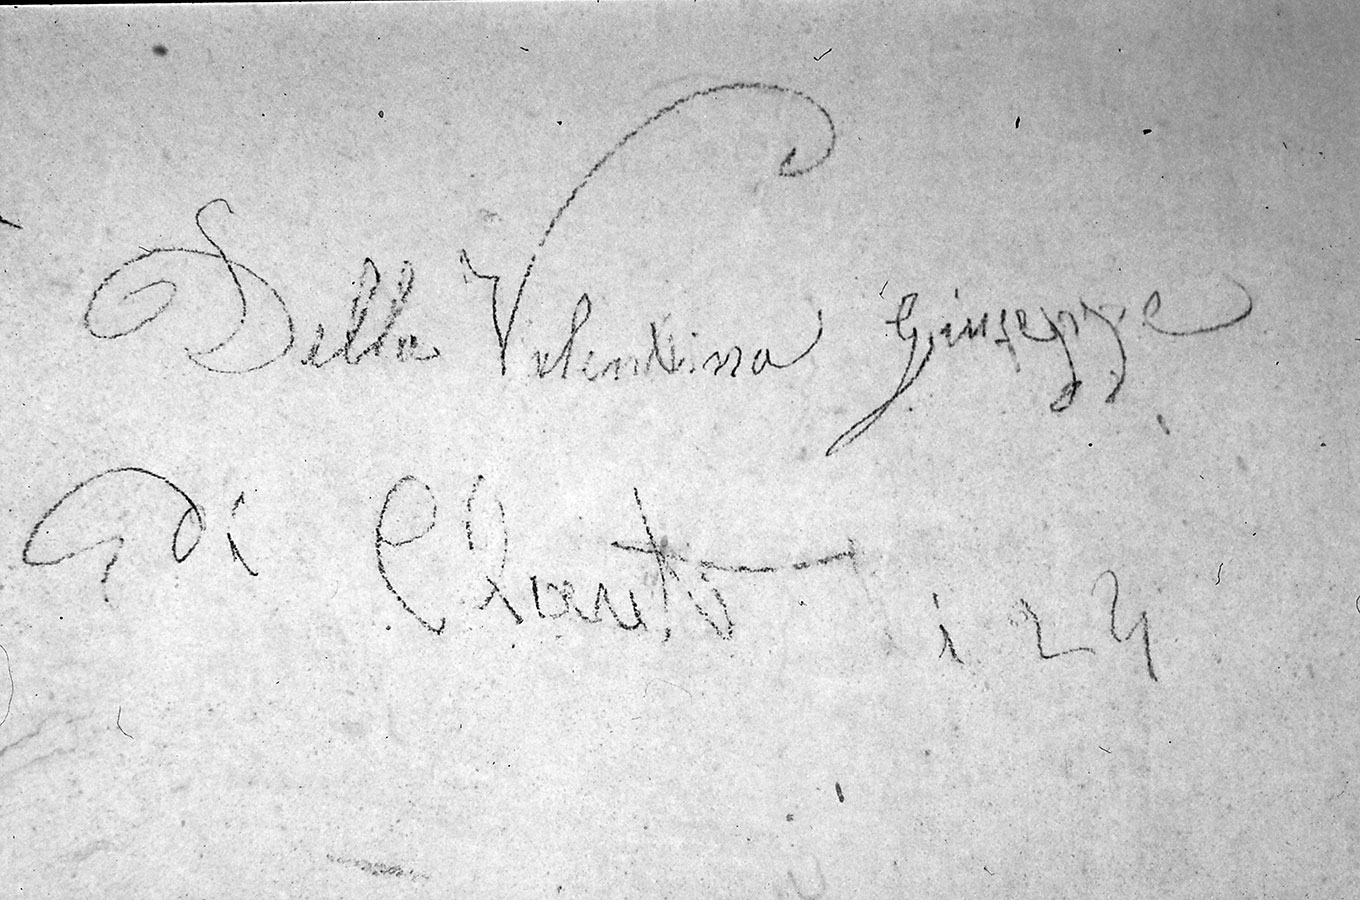 Della Valentina Giuseppe
di Claut 124